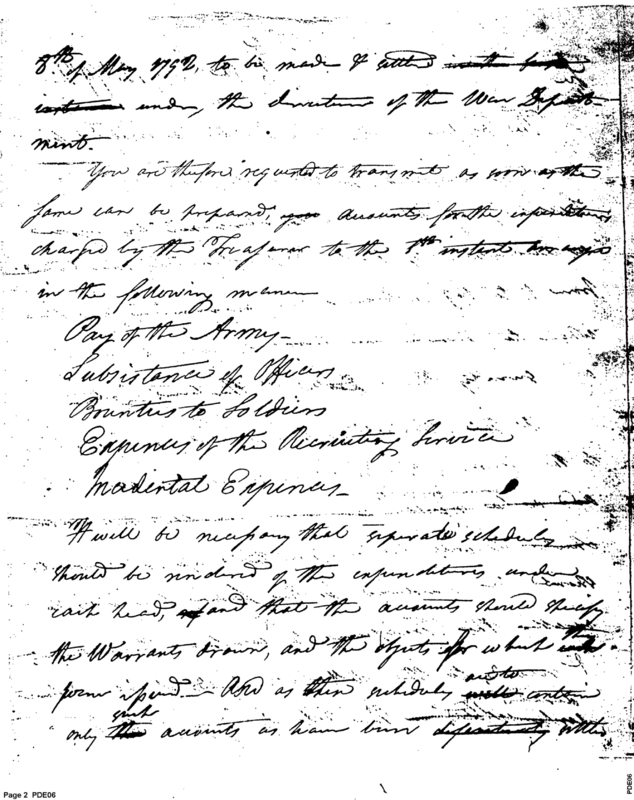 8th of May 1792, to be made & settled
under, the direction of the War Depart-
ment.
You are therefore requested to transmit as soon as the
same can be prepared, accounts for the expenditures
charged by the Treasurer to the 1st instant
in the following manner
Pay of the Army-
Subsistance of Officers
Bounties to Soldiers
Expences of the Recruiting Service
Incidental Expences-
It will be necessary that seperate schedules
should be rendered of the expenditures under
each head, and that the accounts should specify
the Warrants drawn, and the objects for which they
were issued- And as these schedules are to contain
only such accounts as have been settled
Page 2 PDE06
PDE06